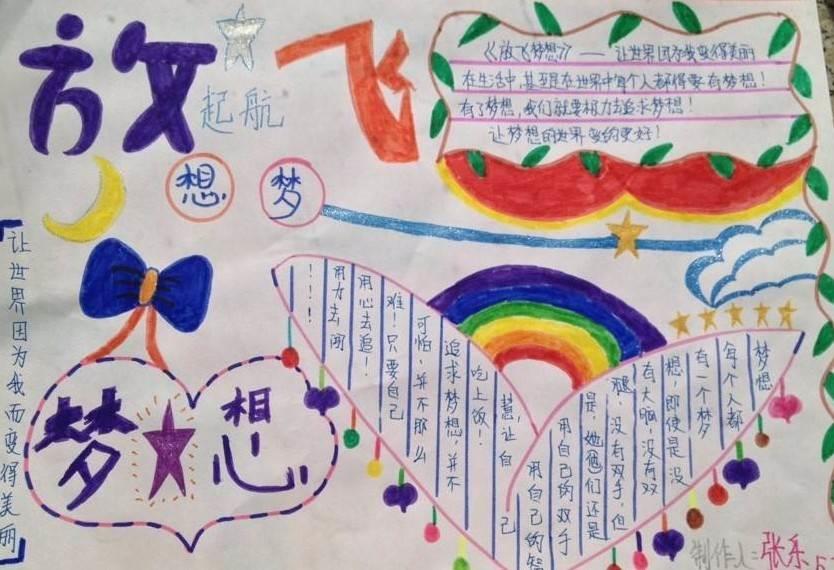 放飞
起航
想
梦
《放飞梦想》——让世界因为我变得美丽
在生活中，甚至是在世界中每个人都得要有梦想！
有了梦想，我们就要极力去追求梦想！
让梦想的世界变的更好！
让世界因为我而变得美丽
梦想
梦想
每个人都
有一个梦
想，即使是没
有大脑，没有双
腿，没有双手，但
是，她他们还是
用自己的双手
用自己的
让自己
吃上饭！
追求梦想，并不
可怕，并不那么
难！只要自己
用心去追！
用力去闯
！！！！
制作人：张乐